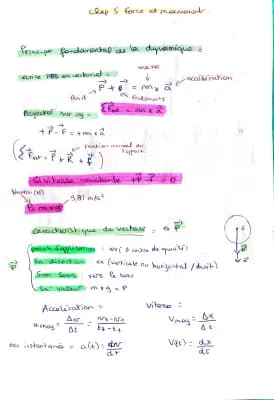 Chap 5 force et mouvement
Principe fondamental de la dynamique :
masse
écrire PFD en vectoriel = P⃗ + f⃗ = m x a⃗ → accélération
poid frottements
Projecter sur oy = Σ F⃗ext = m x a⃗
+P - F = + m x a
réaction normal du support
(Σ F⃗ext = P⃗ + R⃗ + f⃗)
vitesse constante +P - F = 0
Newton (N) 9,81 m/s²
P = m x g
caractéristique du vecteur = P⃗
P⃗ point d'application = ex (G centre de gravité)
Sa direction = ex (verticale ou horizontal / droit)
Son sens vers le bas
Sa valeur m x g = P
Accélération = Vitesse =
a moy = Δv/Δt = v2 - v1/t2 - t1 V moy = Δx/Δt
acc instantané = a(t) = dv/dt V(t) = dx/dt